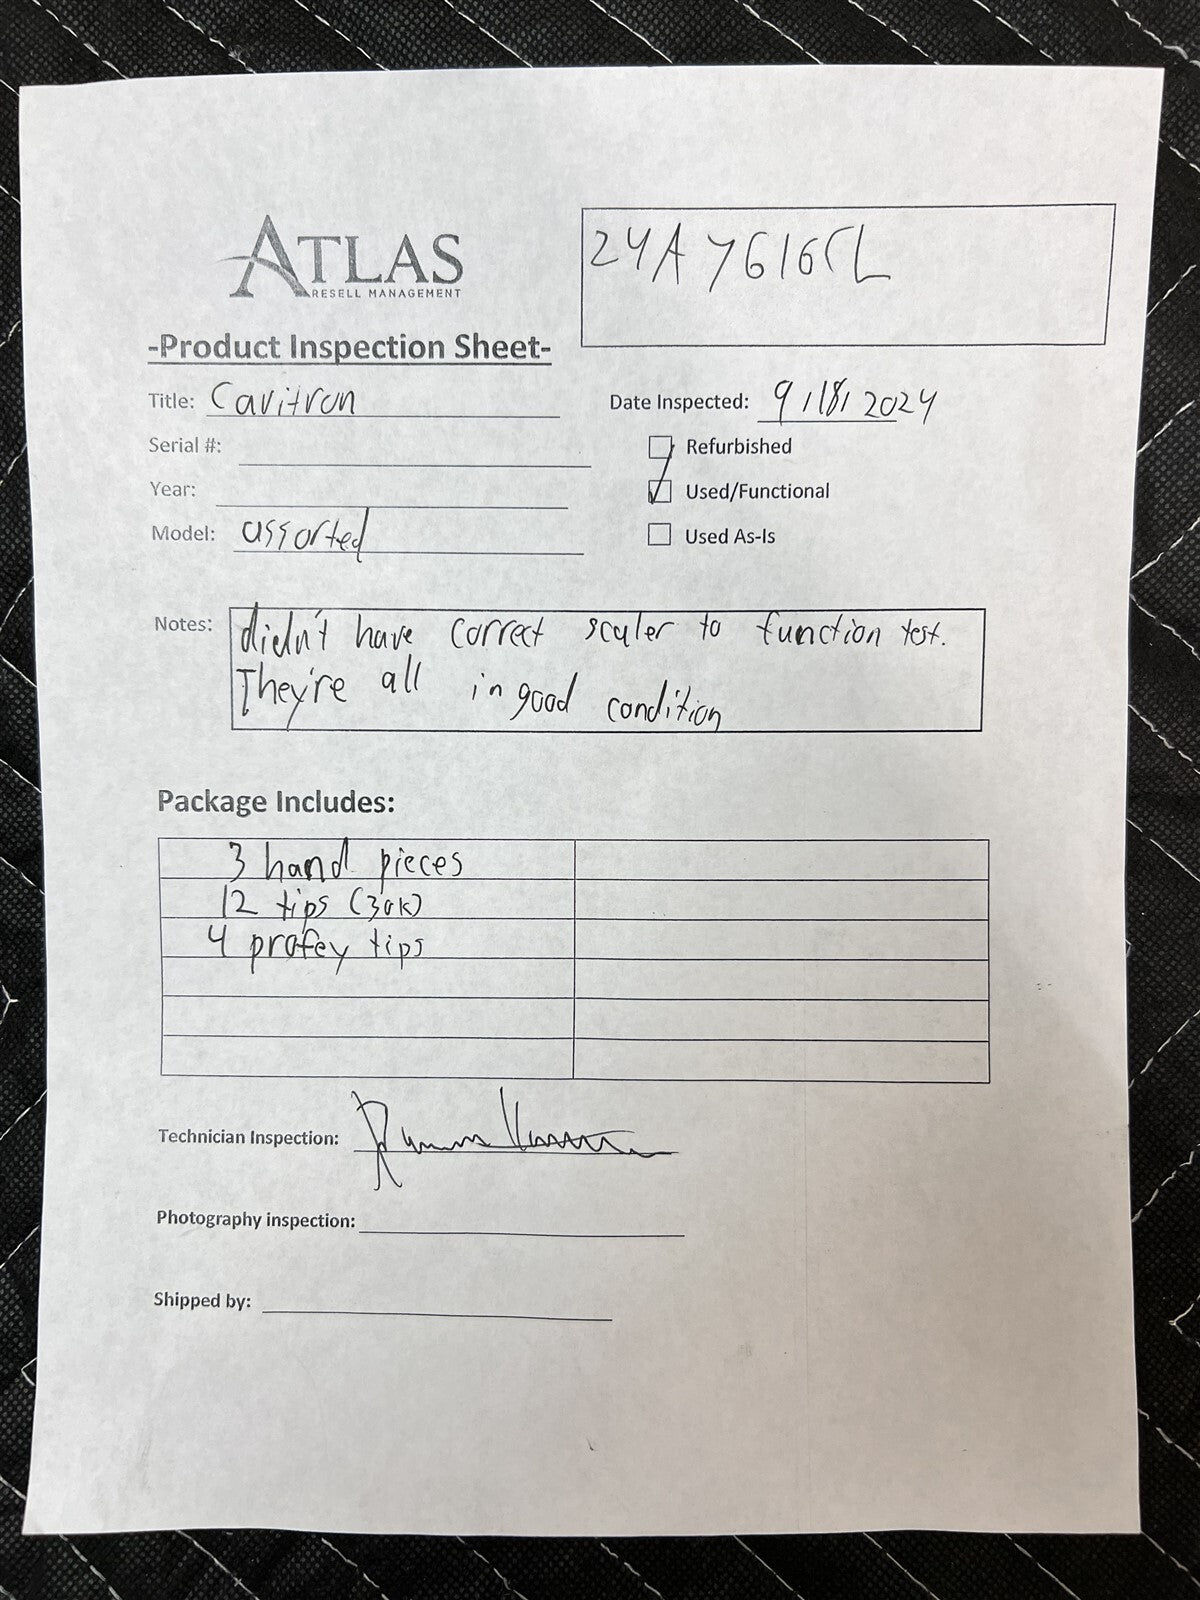 ATLAS
RESELL MANAGEMENT
24A7616CL
-Product Inspection Sheet-
Title: Cavitron
Date Inspected: 9/18/2024
Serial #:
Refurbished
Year:
Used/Functional
Model: assorted
Used As-Is
Notes: didn't have correct scaler to function test.
They're all in good condition
Package Includes:
3 hand pieces
12 tips (30K)
4 profey tips
Technician Inspection:
Photography inspection:
Shipped by: